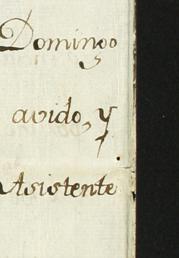 Domingo
avido, y
Asistente